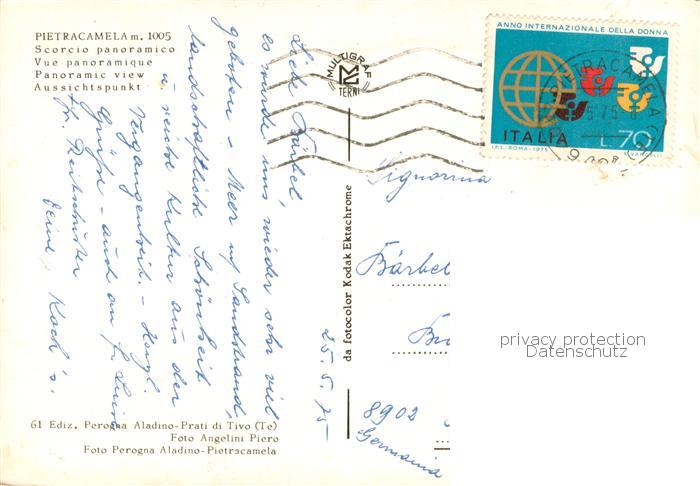 PIETRACAMELA m. 1005
Scorcio panoramico
Vue panoramique
Panoramic view
Aussichtspunkt
MULTIGRAF
TERNI
ANNO INTERNAZIONALE DELLA DONNA
ITALIA L.70
I.P.S.-ROMA-1975
PIETRACAMELA
Liebe Bärbel,
es wurde uns wieder sehr viel
geboten - Meer u/ Sandstrand,
landschaftliche Schönheit
u. reiche Kultur aus der
Vergangenheit. - Herzl.
Grüße - auch an
Fr.
Deine Koch's.
25.5.75
da fotocolor Kodak Ektachrome
Signorina
Bärbel
8902
Germania
privacy protection
Datenschutz
61 Ediz. Perogna Aladino-Prati di Tivo (Te)
Foto Angelini Piero
Foto Perogna Aladino-Pietracamela